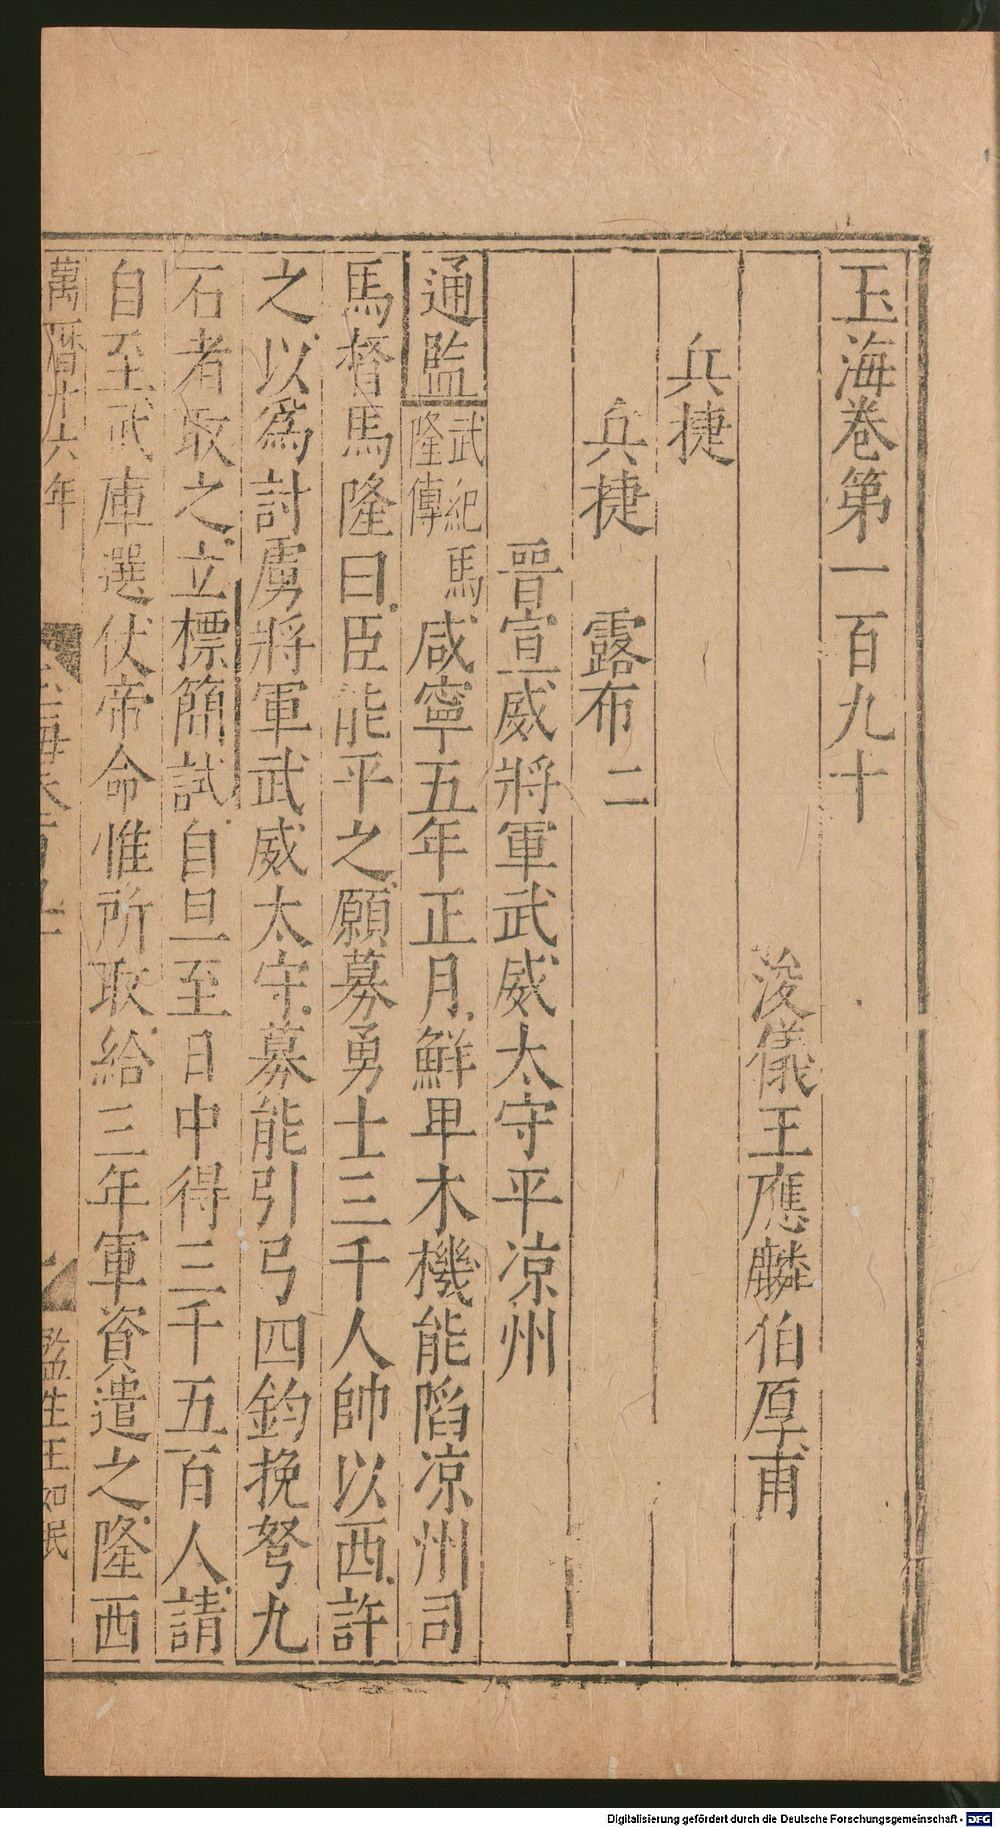 玉海卷第一百九十
浚儀王應麟伯厚甫
兵捷
兵捷 露布二
晉宣威將軍武威太守平凉州
通監武紀馬隆傳咸寧五年正月鮮卑木機能陷凉州司
馬督馬隆曰臣能平之願募勇士三千人帥以西許
之以爲討虜將軍武威太守募能引弓四鈞挽弩九
石者取之立標簡試自旦至日中得三千五百人請
自至武庫選伏帝命惟所取給三年軍資遣之隆西
萬曆十六年
玉海卷百九十
監生王如民
Digitalisierung gefördert durch die Deutsche Forschungsgemeinschaft - DFG